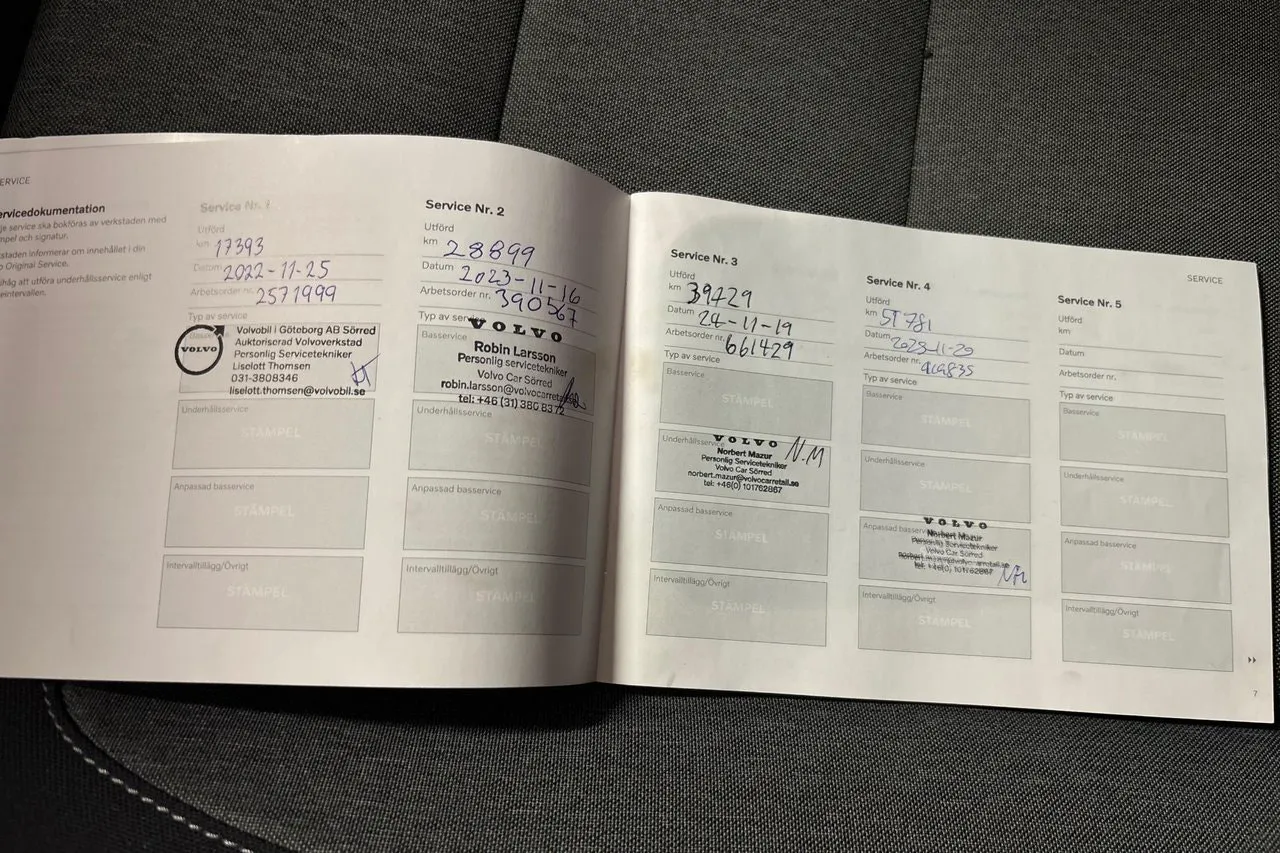 SERVICE
Servicedokumentation
service ska bokföras av verkstaden med
stämpel och signatur.
verkstaden informerar om innehållet i din
Original Service.
ihåg att utföra underhållsservice enligt
Service Nr. 1
Utförd
km 17393
Datum 2022-11-25
Arbetsorder nr. 2571999
Typ av service
VOLVO
Volvobil i Göteborg AB Sörred
Auktoriserad Volvoverkstad
Personlig Servicetekniker
Liselott Thomsen
031-3808346
liselott.thomsen@volvobil.se
Underhållsservice
STÄMPEL
Anpassad basservice
STÄMPEL
Intervalltillägg/Övrigt
STÄMPEL
Service Nr. 2
Utförd
km 28899
Datum 2023-11-16
Arbetsorder nr. 390567
Typ av service
VOLVO
Basservice
Robin Larsson
Personlig servicetekniker
Volvo Car Sörred
robin.larsson@volvocarretail.se
tel: +46 (31) 380 8372
Underhållsservice
STÄMPEL
Anpassad basservice
STÄMPEL
Intervalltillägg/Övrigt
STÄMPEL
Service Nr. 3
Utförd
km 39429
Datum 24-11-19
Arbetsorder nr. 661429
Typ av service
Basservice
STÄMPEL
Underhållsservice
VOLVO
N.M
Norbert Mazur
Personlig Servicetekniker
Volvo Car Sörred
norbert.mazur@volvocarretail.se
tel: +46(0) 101762867
Anpassad basservice
STÄMPEL
Intervalltillägg/Övrigt
STÄMPEL
SERVICE
Service Nr. 4
Utförd
km 51781
Datum
Arbetsorder nr.
Typ av service
Basservice
STÄMPEL
Underhållsservice
STÄMPEL
Anpassad basservice
VOLVO
Norbert Mazur
Personlig Servicetekniker
Volvo Car Sörred
tel: +46(0) 101762867
Intervalltillägg/Övrigt
STÄMPEL
Service Nr. 5
Utförd
km
Datum
Arbetsorder nr.
Typ av service
Basservice
STÄMPEL
Underhållsservice
STÄMPEL
Anpassad basservice
STÄMPEL
Intervalltillägg/Övrigt
STÄMPEL
7